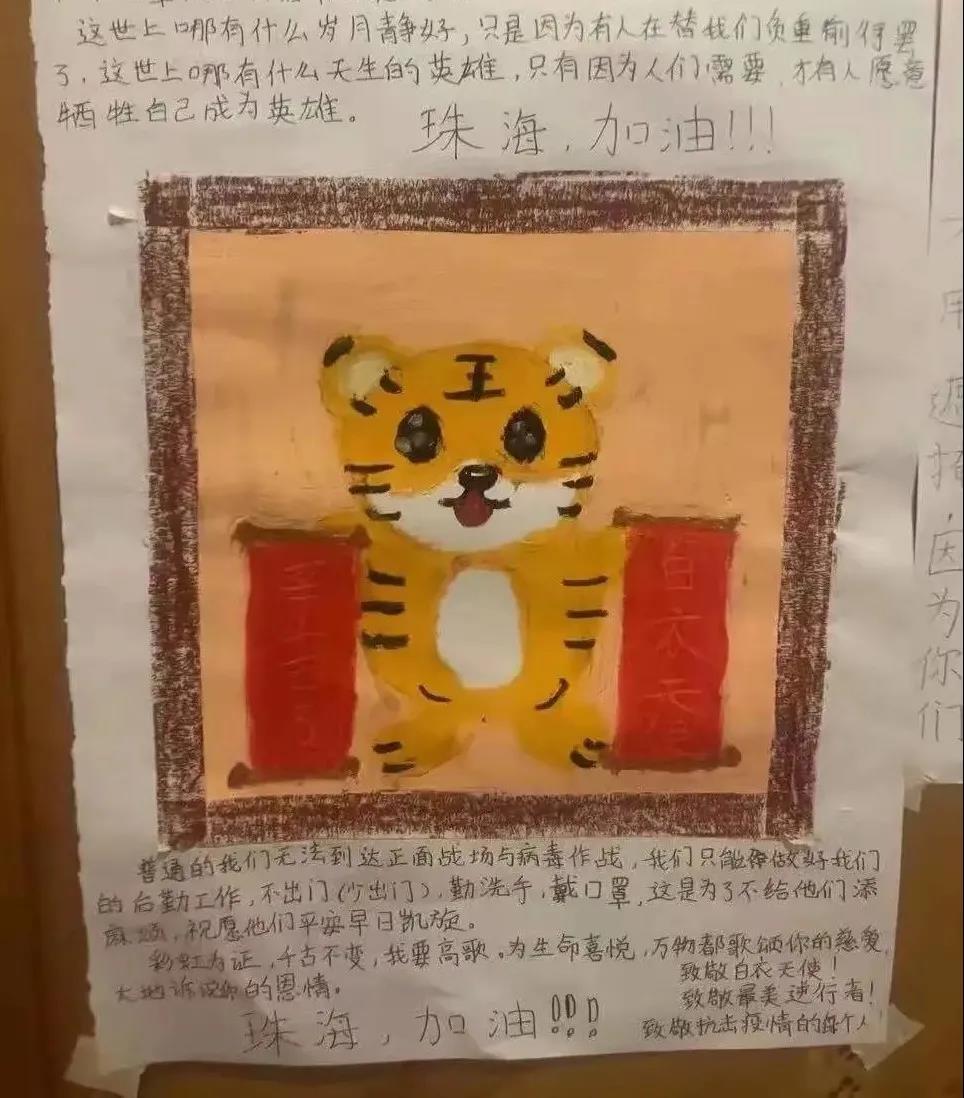 这世上哪有什么岁月静好，只是因为有人在替我们负重前行罢
了，这世上哪有什么天生的英雄，只有因为人们需要，才有人愿意
牺牲自己成为英雄。
珠海，加油!!!
王
白衣天使
普通的我们无法到达正面战场与病毒作战，我们只能做好我们
的后勤工作，不出门(少出门)，勤洗手，戴口罩，这是为了不给他们添
麻烦，祝愿他们平安早日凯旋。
彩虹为证，千古不变，我要高歌。为生命喜悦，万物都歌颂你的慈爱，
大地诉说你的恩情。
致敬白衣天使！
致敬最美逆行者！
致敬抗击疫情的每个人
珠海，加油!!!
因为你们